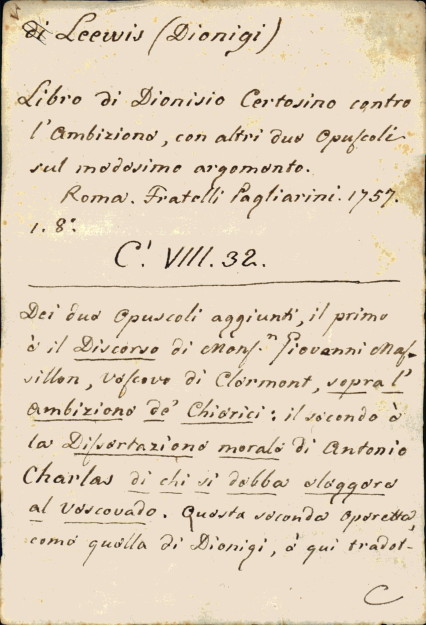 di Leewis (Dionigi)
Libro di Dionisio Certosino contro
l'Ambizione, con altri due Opuscoli
sul medesimo argomento.
Roma. Fratelli Pagliarini. 1757.
1. 8º.
C! VIII. 32.
Dei due Opuscoli aggiunti, il primo
è il Discorso di Mons.n Giovanni Mas-
sillon, Vescovo di Clermont, sopra l'
Ambizione de' Chierici: il secondo è
la Dissertazione morale di Antonio
Charlas di chi si debba eleggere
al Vescovado. Questa seconda Operetta,
come quella di Dionigi, è qui tradot-